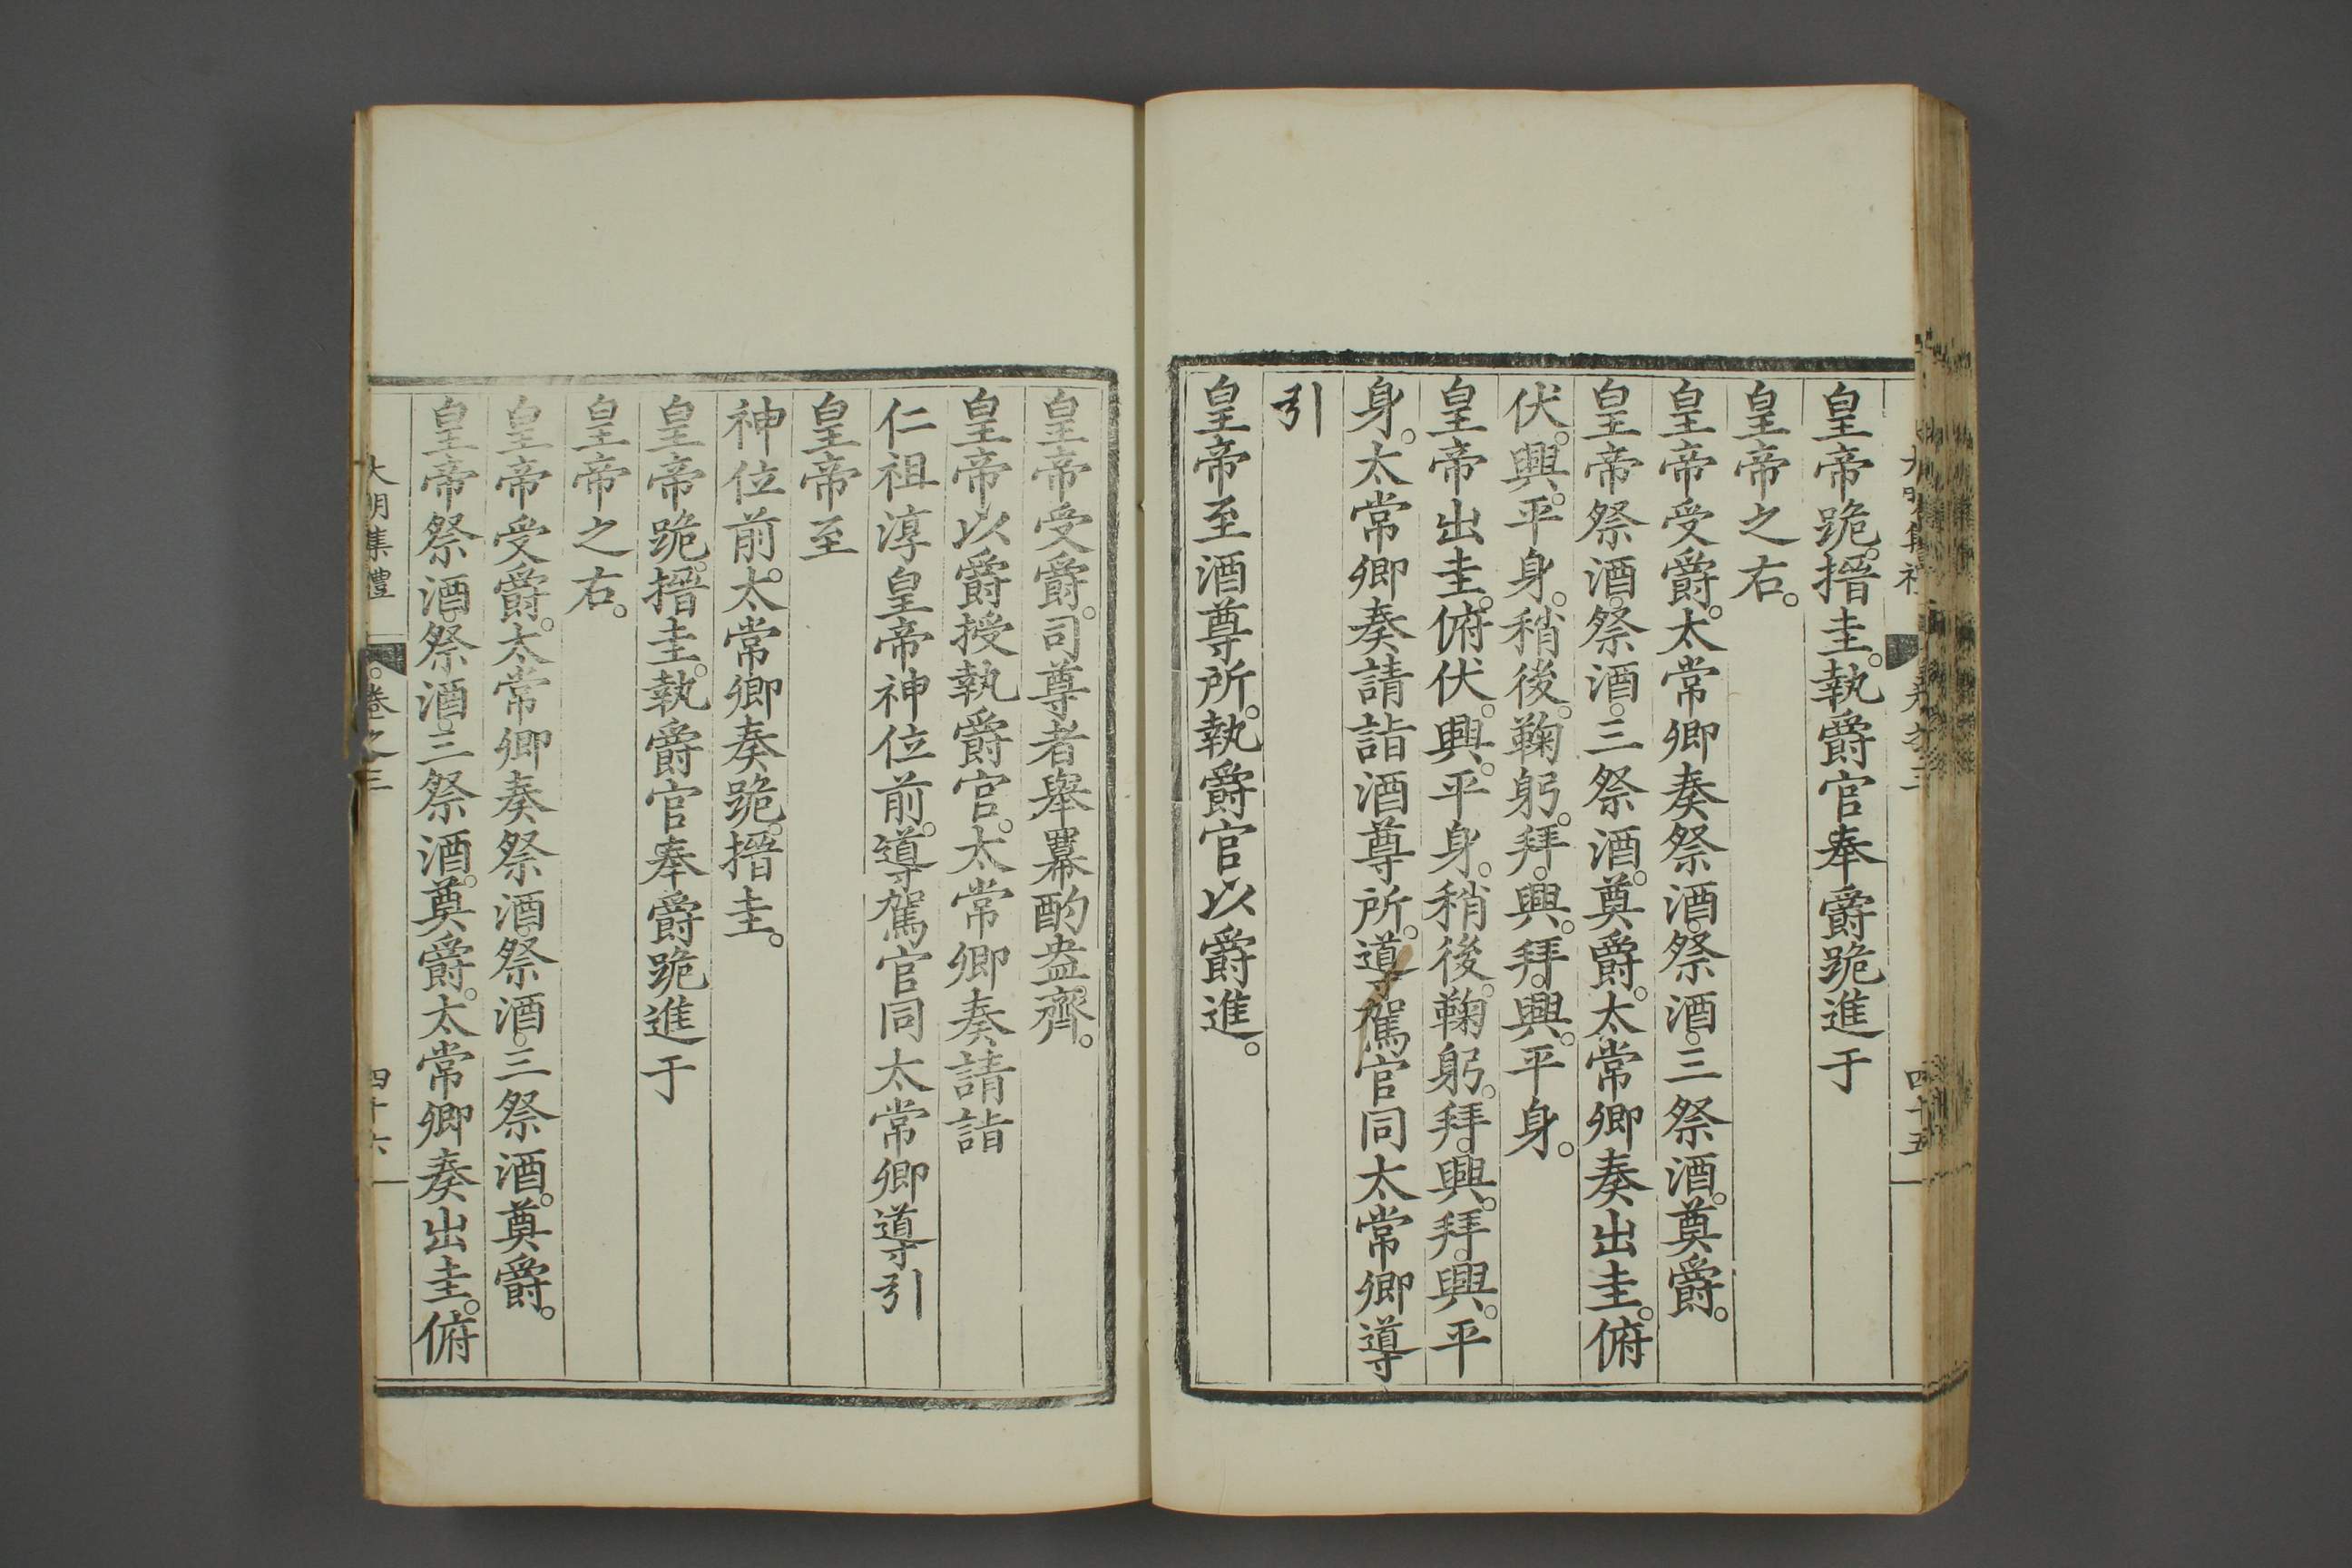 皇帝跪。搢圭。執爵官奉爵跪進于
皇帝之右。
皇帝受爵。太常卿奏祭酒。祭酒。三祭酒。奠爵。
皇帝祭酒。祭酒。三祭酒。奠爵。太常卿奏出圭。俯
伏。興。平身。稍後。鞠躬。拜。興。拜。興。平身。
皇帝出圭。俯伏。興。平身。稍後。鞠躬。拜。興。拜。興。平
身。太常卿奏請詣酒尊所。導駕官同太常卿導
引
皇帝至酒尊所。執爵官以爵進。
皇帝受爵。司尊者舉羃酌盎齊。
皇帝以爵授執爵官。太常卿奏請詣
仁祖淳皇帝神位前。導駕官同太常卿導引
皇帝至
神位前。太常卿奏跪。搢圭。
皇帝跪。搢圭。執爵官奉爵跪進于
皇帝之右。
皇帝受爵。太常卿奏祭酒。祭酒。三祭酒。奠爵。
皇帝祭酒。祭酒。三祭酒。奠爵。太常卿奏出圭。俯
大明集禮 卷之三 四十六